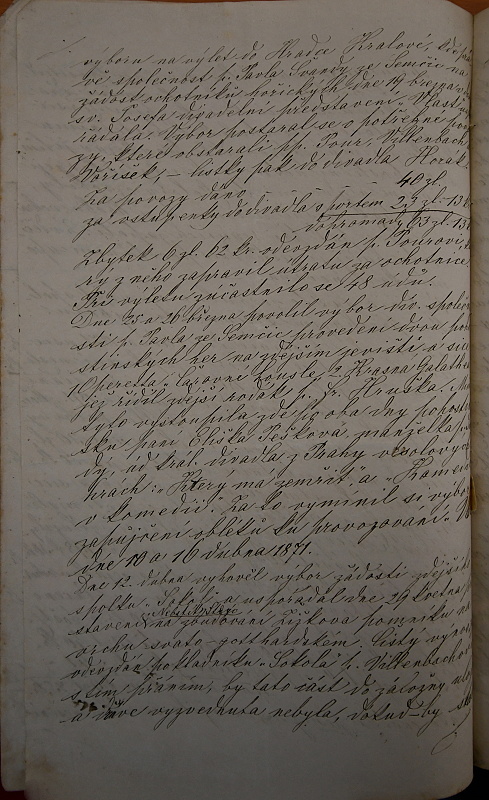 výboru na výlet do Hradce Králové, kdež
společnost p. Pavla Švandy ze Semčic na
žádost ochotníků hořických dne 19 března
sv. Josefa divadelní představení
řádala. Výbor postaral se o potřebné povo
zy, které obstarali pp. Pour, Villenbach
Vařísek, – lístky pak do divadla Horák.
Za povozy dáno 40 zl.
za vstupenky do divadla s portem 23 zl. 13
dohromady 63 zl. 13
Zbytek 6 zl. 62 kr. odevzdán p. Pourovi,
rý z něho zapravil útratu za ochotnice
Při výletu zúčastnilo se 48 údů.
Dne 25 a 26 března povolil výbor div. společno
sti p. Pavla ze Semčic provedení dvou po
stinských her na zdejším jevišti, a sice
operetta „Čarovné housle“, „Krásná Galathea
jež řídil zdejší rodák p. Fr. Hruška.
bylo vystoupila zde po oba dny pohost
sku paní Eliška Pešková, manželka p.
dy, úd král. divadla z Prahy v veselových
hrách: „Který má zemřít“ a „Komedie
v komedii“. Za to vymínil si výbor
zapůjčení obleků ku provozování
dne 10 a 16 dubna 1871.
Dne 12. dubna vyhověl výbor žádosti zdejšího
spolku „Sokol“ a uspořádal dne 29 května
stavení na zbudování Žižkova pomníku na
vrchu svato-gotthardském. Čistý výnos
odevzdán pokladníku „Sokola“ p. Villenbachovi
s tím přáním, by tato část do záložny
a dříve vyzvednuta nebyla, dotud – by